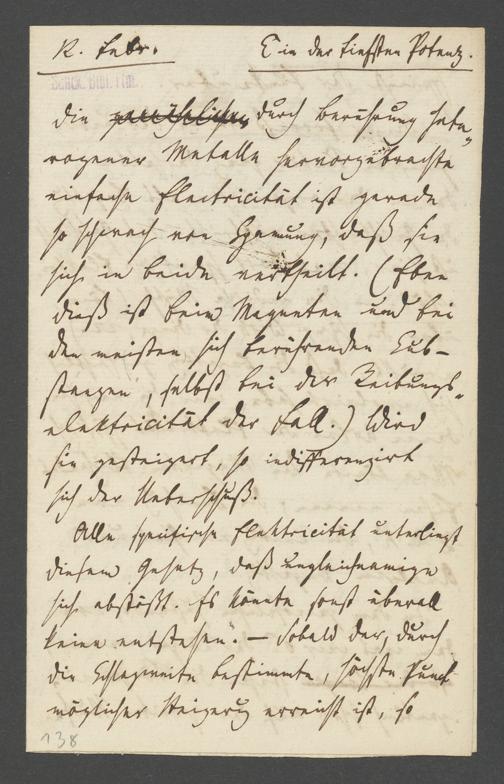 12. Febr. E in der tiefsten Potenz.
Die durch Berührung hete-
rogener Metalle hervorgebrachte
einfache Electricität ist gerade
so schwach von Spannung, daß sie
sich in beide vertheilt. (Eben
dieß ist beim Magneten und bei
den meisten sich berührenden Sub-
stanzen, selbst bei der Reibungs-
elektricität der Fall.) Wird
sie gesteigert, so indifferenzirt
sich der Ueberschuß.
Alle specifische Elektricität unterliegt
diesem Gesetz, daß ungleichnamige
sich abstößt. Es könnte sonst überall
keine entstehen. — Sobald der, durch
die Schlagweite bestimmte, höchste Punct
möglicher Steigerung erreicht ist, so
138